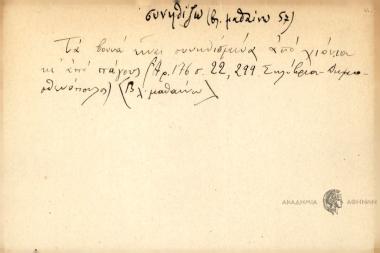 συνηθίζω (βλ. μαθαίνω 57)
Τὰ βουνὰ εἶναι συνηθισμένα ἀπὸ χιόνια
κι' ἀπὸ πάγους (Ἀρ. 176 σ. 22, 299 Σηλύβρια Δημο-
σθενόπουλος) (Βλ. μαθαίνω)
ΑΚΑΔΗΜΙΑ ΑΘΗΝΩΝ